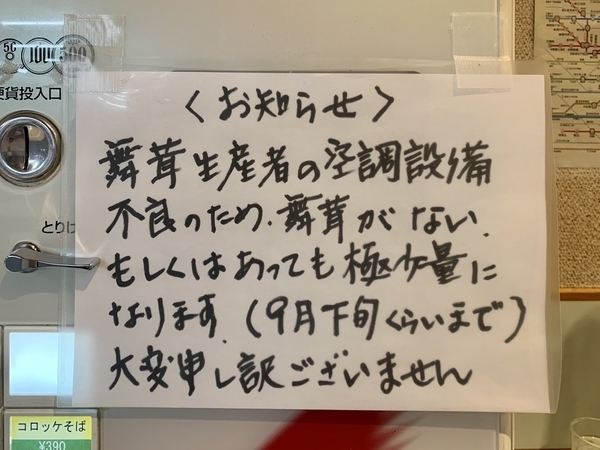 50
100
500
硬貨投入口
とりけ
〈お知らせ〉
舞茸生産者の空調設備
不良のため、舞茸がない、
もしくはあっても極少量に
なります。(9月下旬くらいまで)
大変申し訳ございません
コロッケそば
¥390